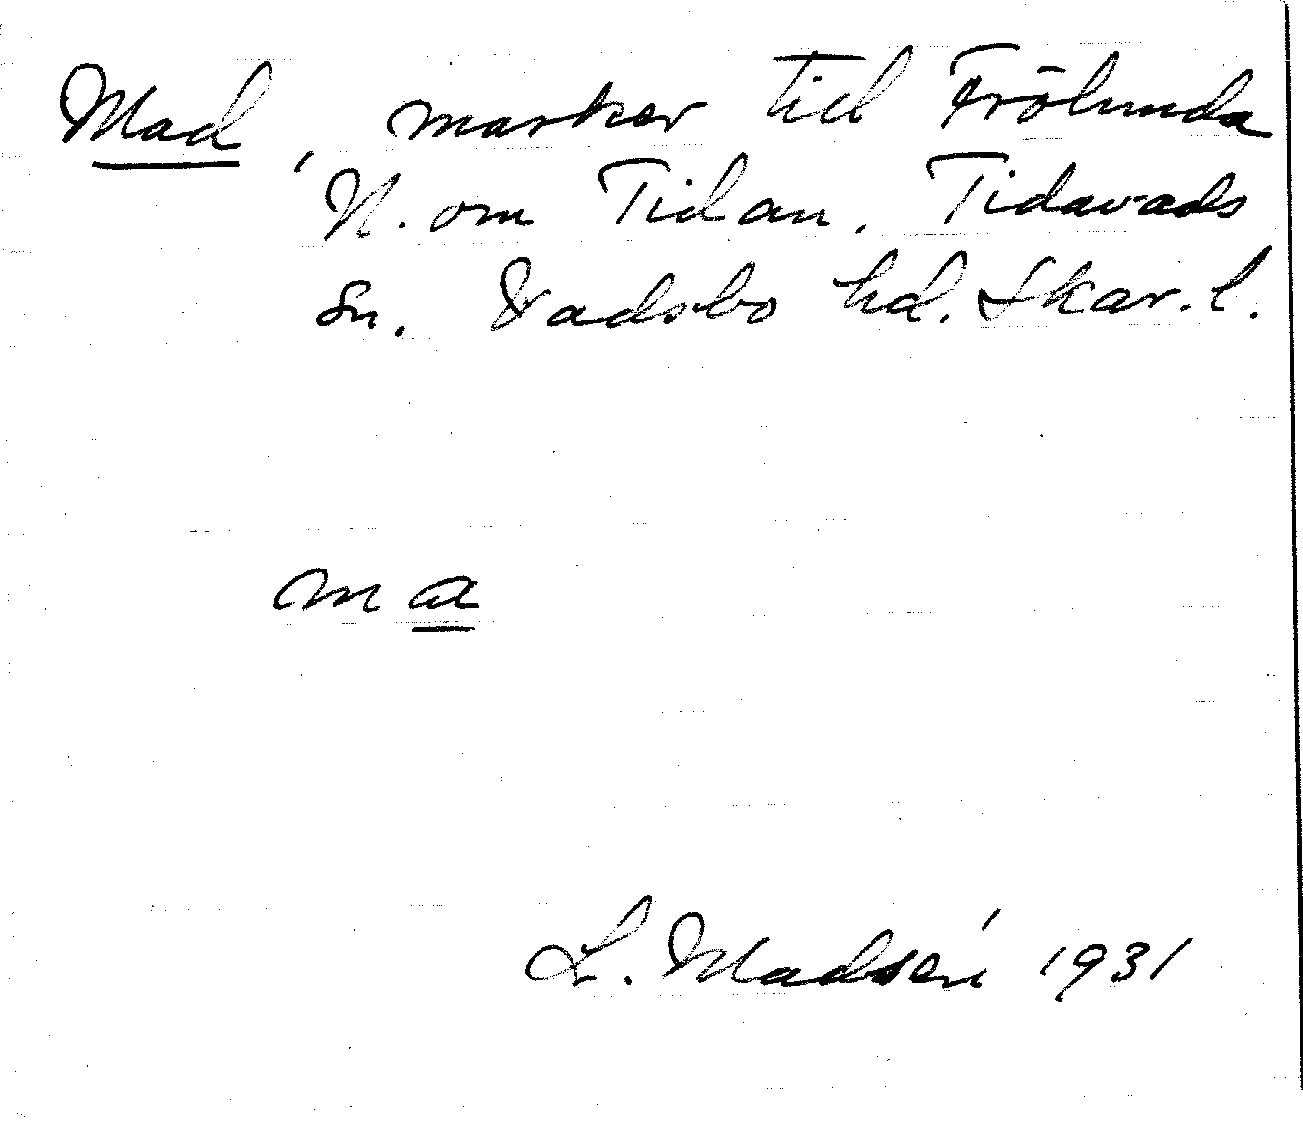 Mad, marker till Frölunda
N. om Tidan. Tidavads
sn. Vadsbo hd. Skar. l.
ma
L. Madsén 1931